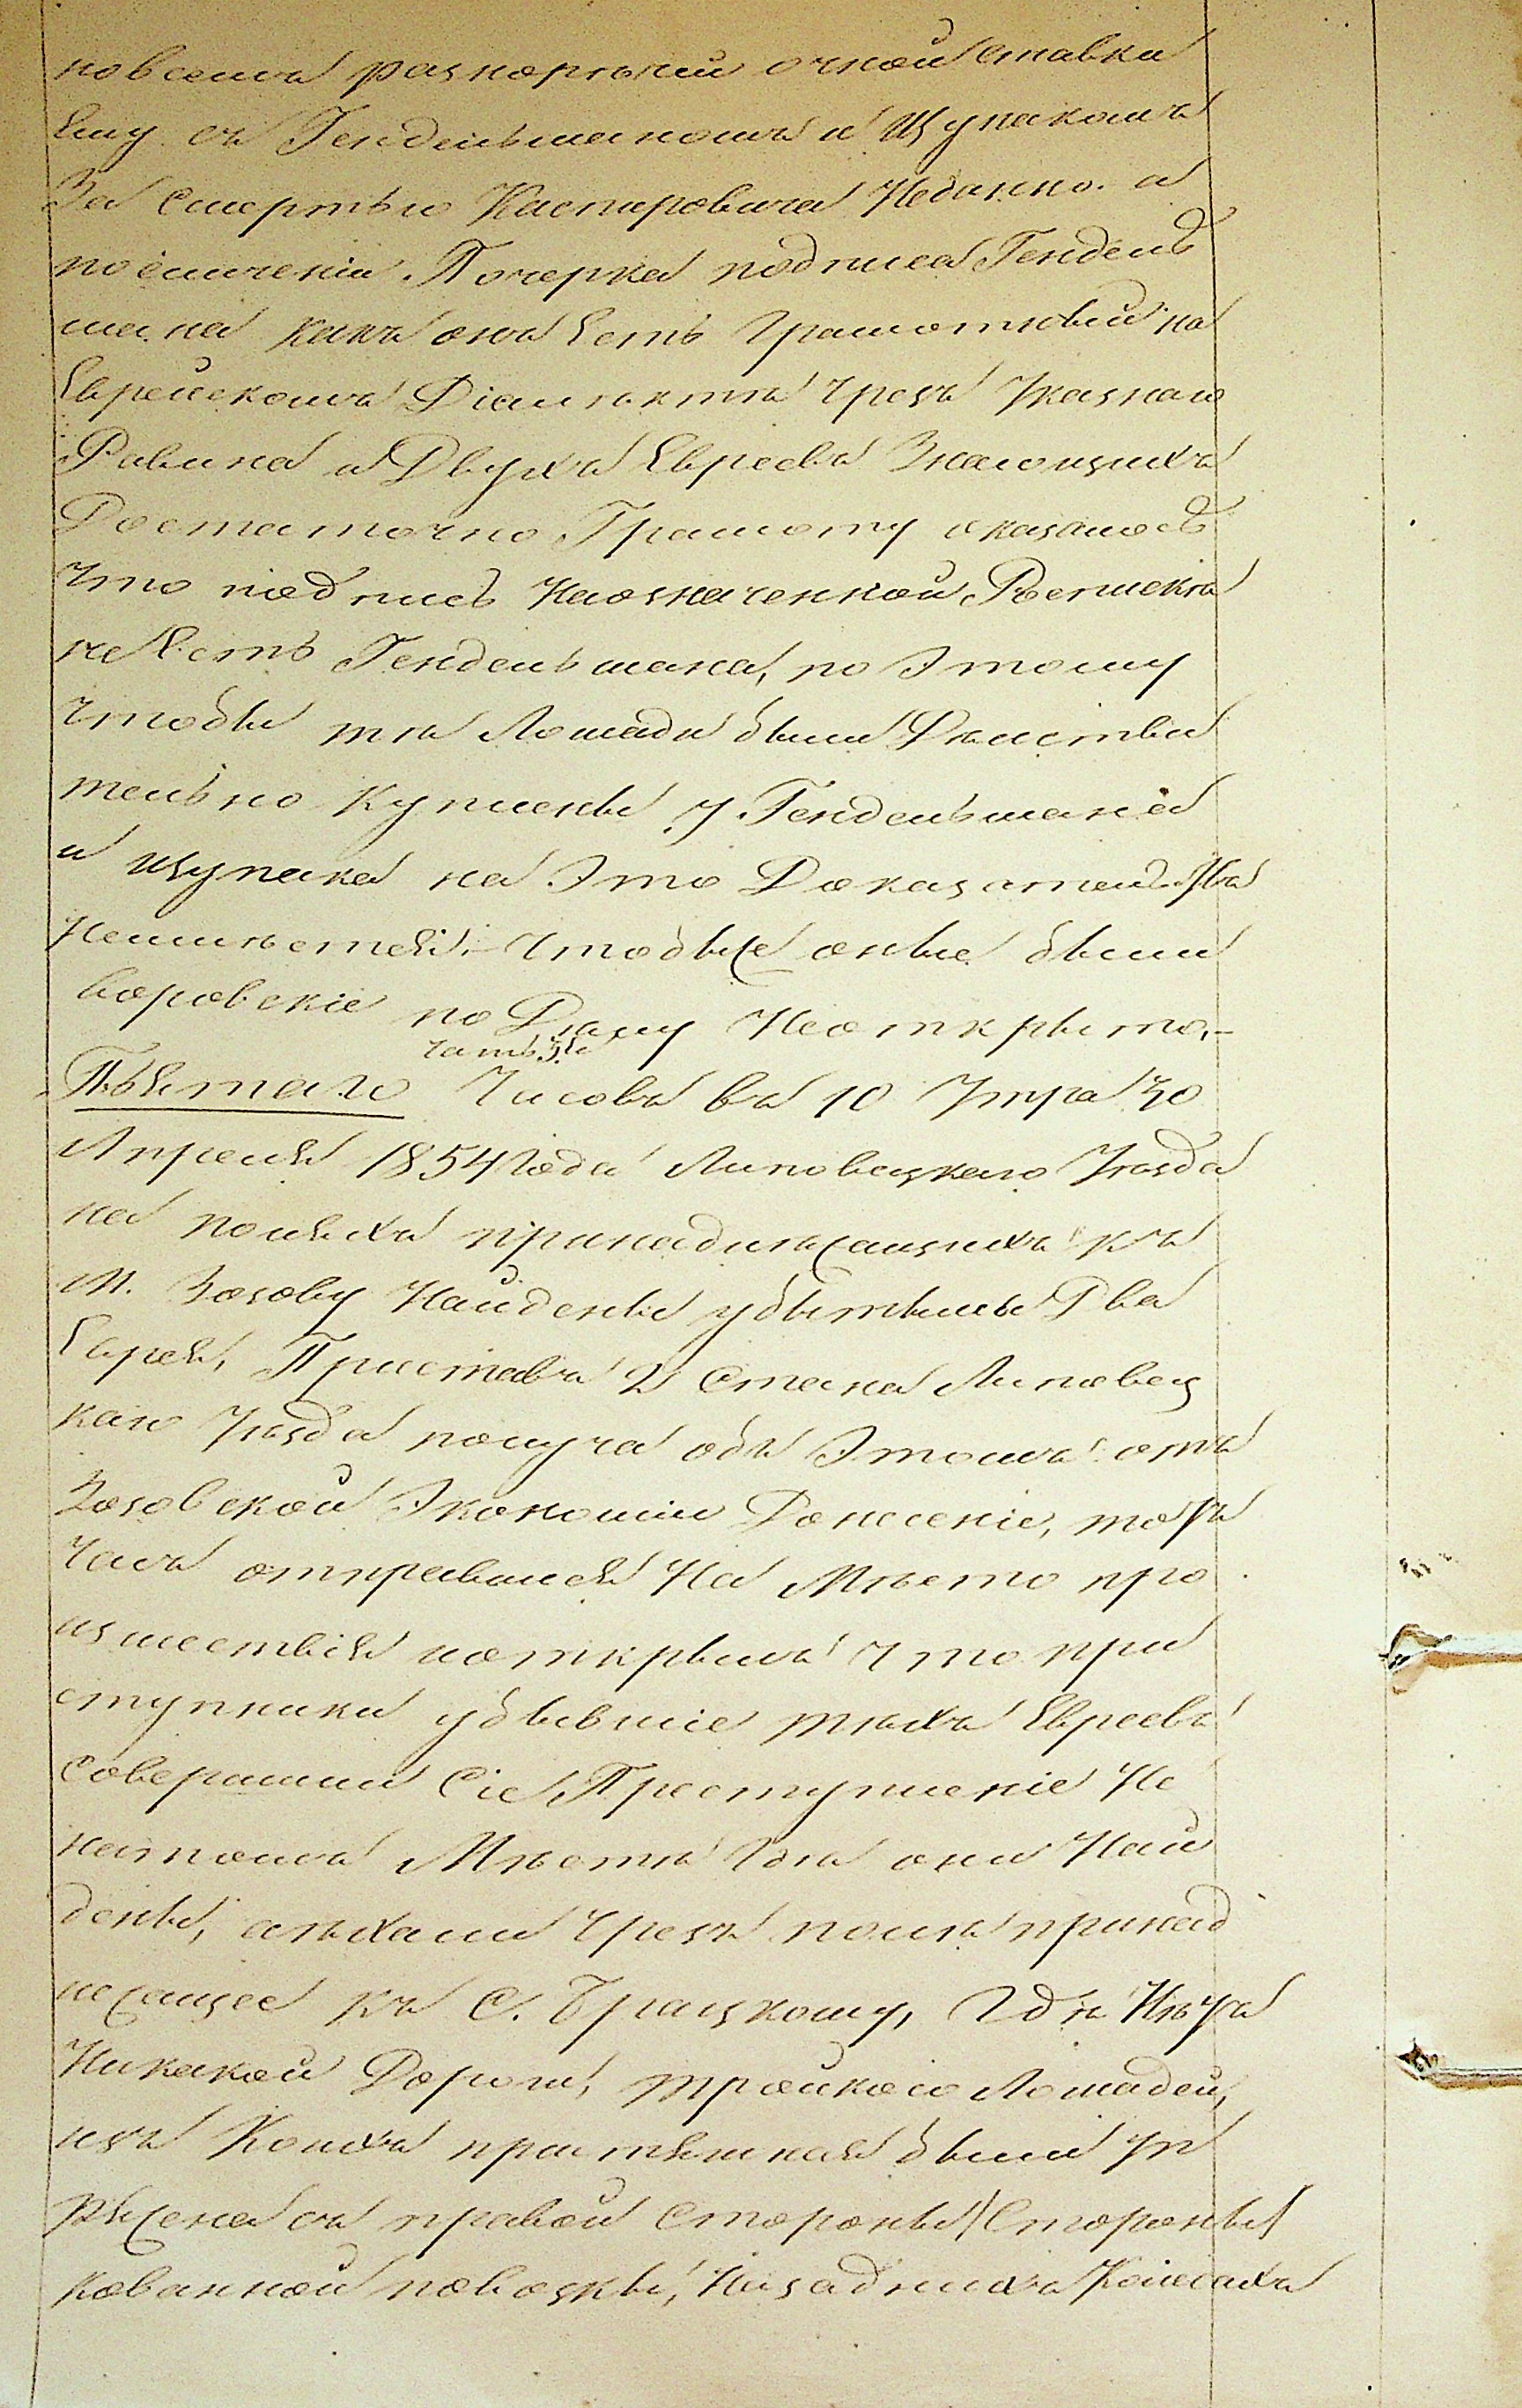 новсемъ разноречіи очной ставки
Ему съ Гендельманомъ и Щупакомъ
За смертью Каспировича Недано. и
по сличеніи Почерка подписа Гендель
мана какъ онъ Есть Грамотный на
Еврейскомъ Діалектѣ чрезъ Указнаго
Равина и Двухъ Евреевъ Знающихъ
Достаточно Грамоту оказалось
Что подпись Наозначенной Роспискѣ
не Есть Гендельмана, по Этому
чтобы тѣ Лошади были Дѣистви
тельно Куплены У Гендельмана
и щупака на Это Доказательствъ
Неимѣется. Чтобыже оные были
воровскіе по Дѣлу Неоткрыто,-
часть 3я
Пьятаго Часовъ въ 10 Утра 30
Апреля 1854 года Липовецкаго Уѣзда
на поляхъ принадлѣжащихъ къ
М. Зозову Найдены убытыми Два
Еврея, Приставъ 2 Стана Липовец
каго Уѣзда получа объ Этомъ отъ
Зозовской Экономіи Донесеніе, тотъ
часъ отправился На Мѣсто про
изшествія иоткрылъ что при
ступники убывшіе тѣхъ Евреевъ
Совершили Сіе Преступленіе Не
натомъ Мѣстѣ гдѣ они Най
дены, аѣхали чрезъ поля принад
лежащее къ С. Брацкому, Гдѣ Нѣтъ
Никакой Дороги, тройкою Лошадей,
изъ Коихъ пристяжная были уп
ряжена съ правой Стороны/Стороны/
кованной повозкы, Назаднихъ Колесахъ